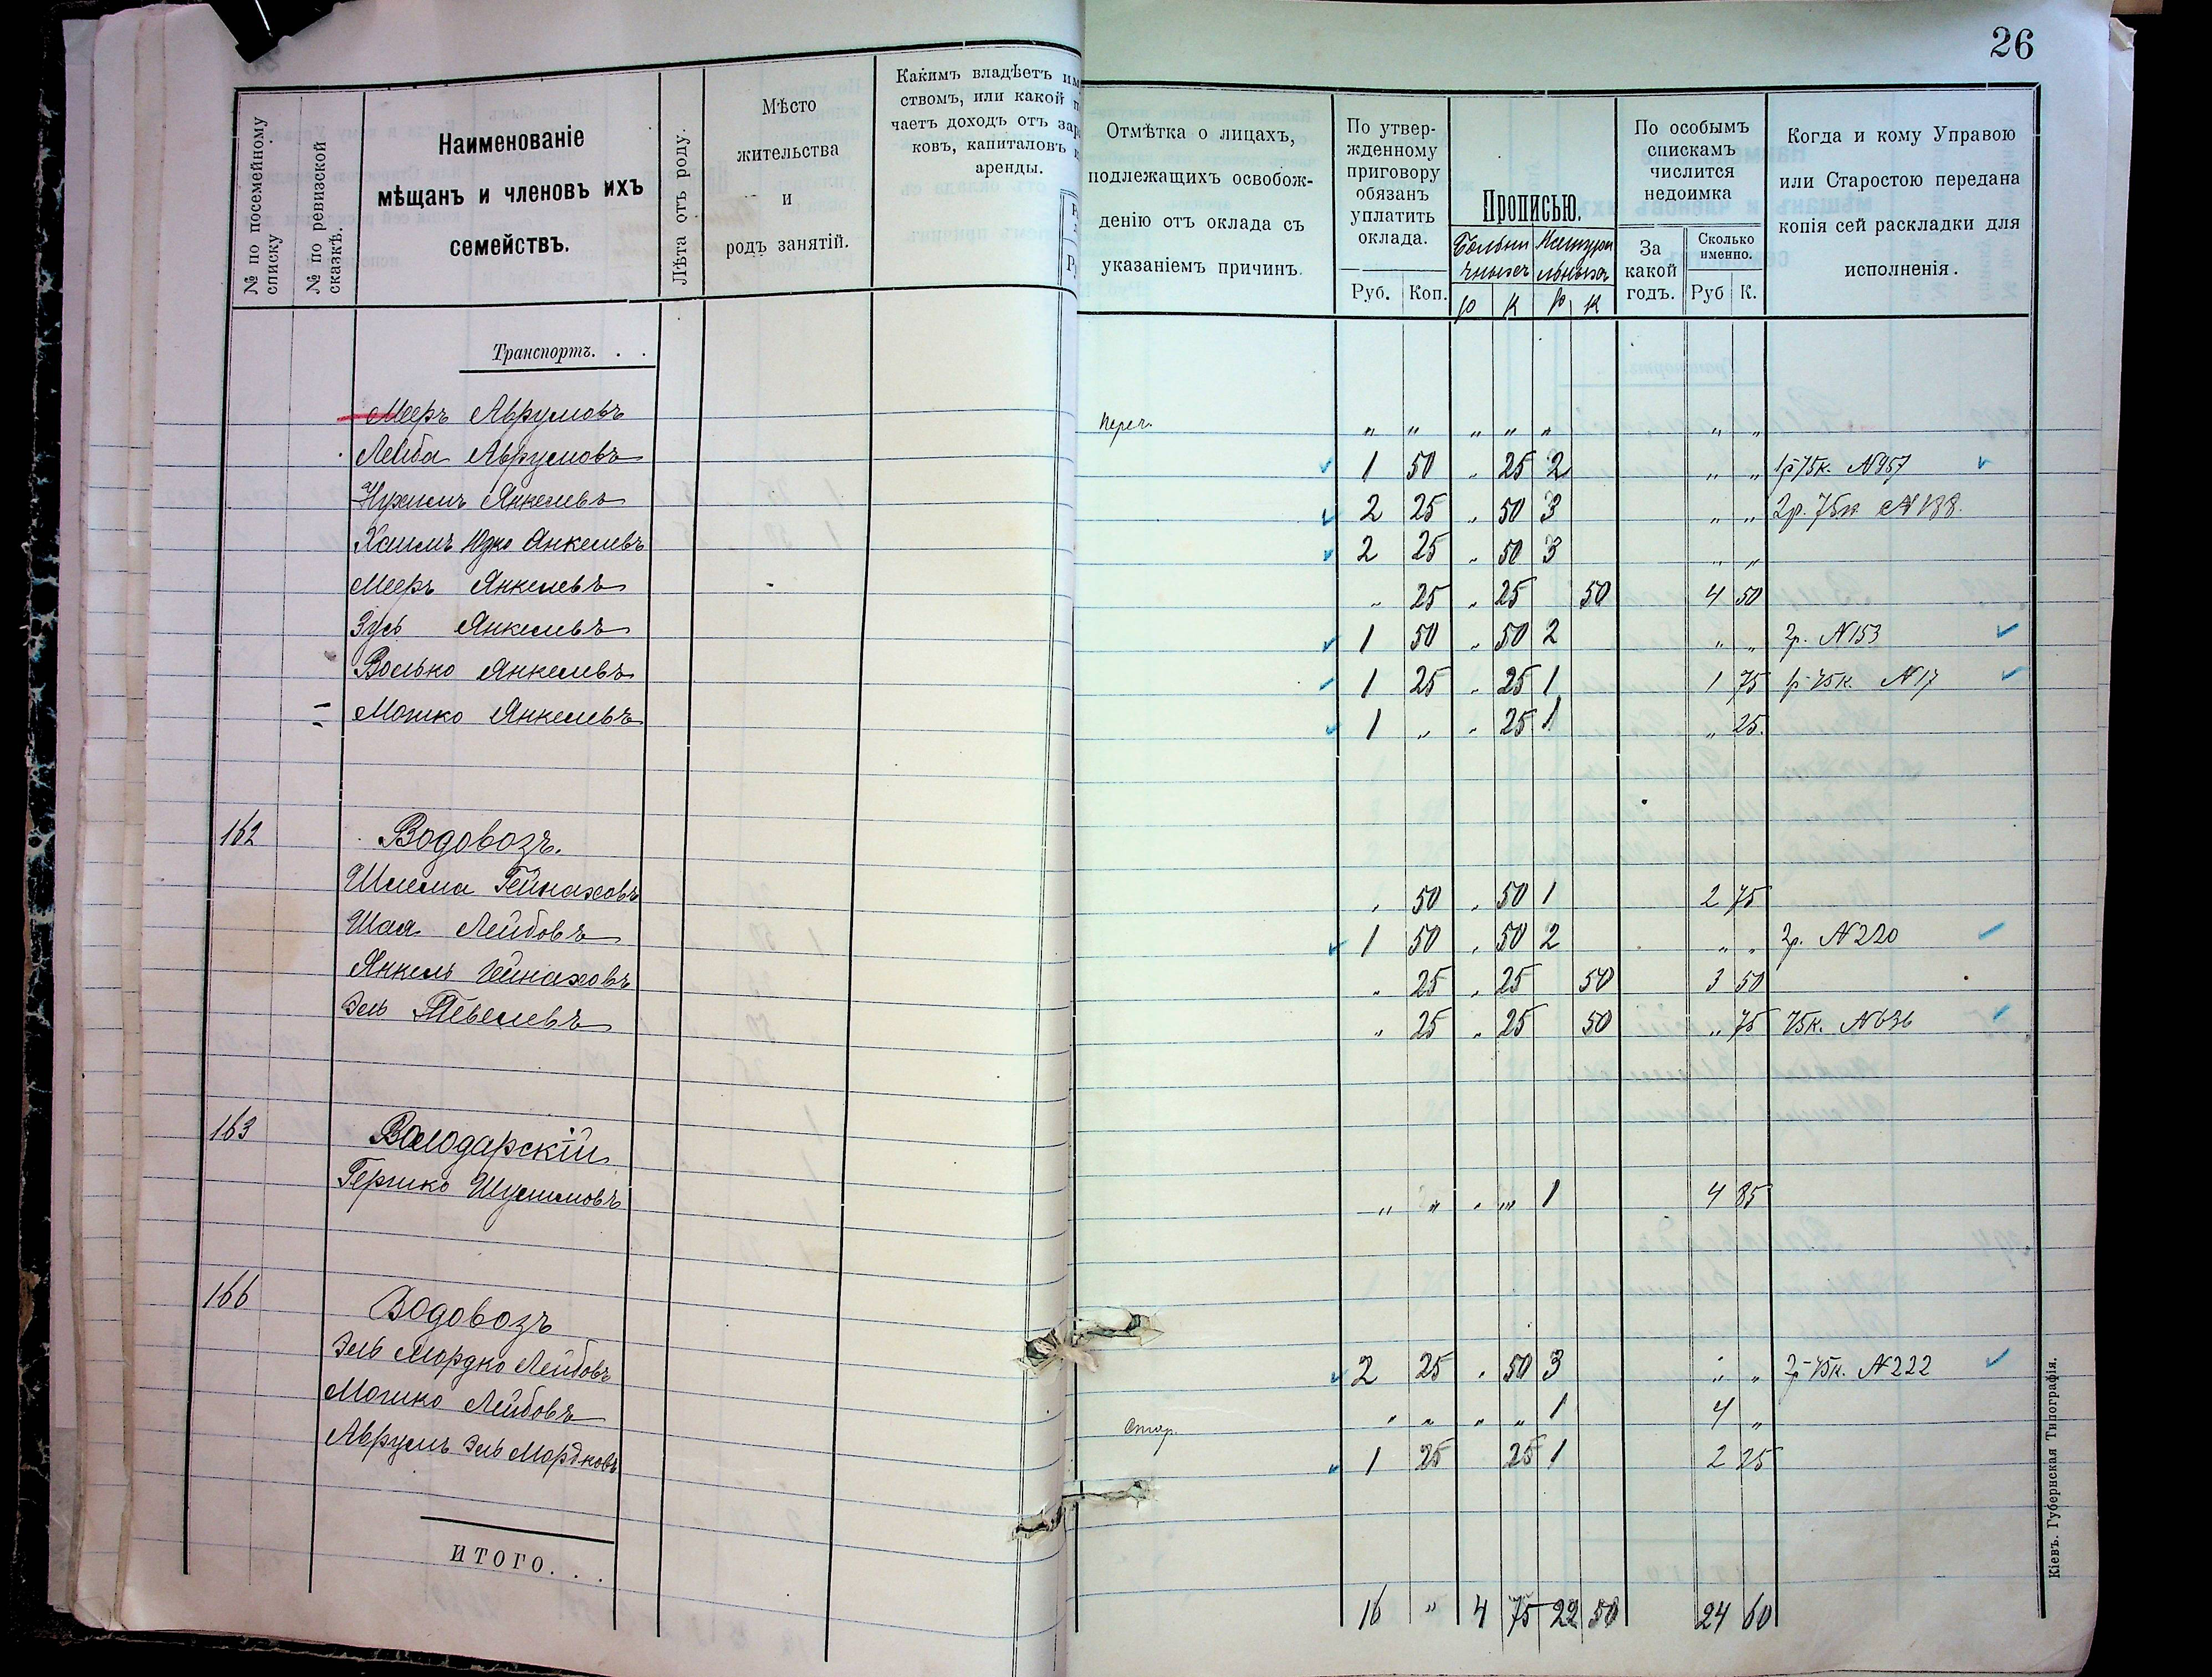 26
№ по посемейному списку
№ по ревизской сказкѣ.
Наименованіе
мѣщанъ и членовъ ихъ
семействъ.
Лѣта отъ роду.
Мѣсто
жительства
и
родъ занятій.
Какимъ владѣетъ
ствомъ, или какой
чаетъ доходъ отъ
ковъ, капиталовъ
аренды.
Отмѣтка о лицахъ,
подлежащихъ освобож-
денію отъ оклада съ
указаніемъ причинъ.
По утвер-
жденному
приговору
обязанъ
уплатить
оклада.
Руб. Коп.
Прописью.
р к р к
По особымъ
спискамъ
числится
недоимка
За
какой
годъ.
Сколько
именно.
Руб К.
Когда и кому Управою
или Старостою передана
копія сей раскладки для
исполненія.
Транспортъ. . .
Мееръ Аврумовъ переч. " " " " " " "
Лейба Аврумовъ 1 50 " 25 2 " " 1р 75к. №957
Нухимъ Янкелевъ 2 25 " 50 3 " " 2р. 75к №188.
Хаимъ Юдко Янкелевъ 2 25 " 50 3 " "
Мееръ Янкелевъ " 25 " 25 50 4 50
Зусь Янкелевъ 1 50 " 50 2 " " 2р. №153
Волько Янкелевъ 1 25 " 25 1 1 75 1р 75к. №17
Мошко Янкелевъ 1 " " 25 1 " 25.
162 Водовозъ.
Шлема Гейнаховъ " 50 " 50 1 2 75
Шая Лейбовъ 1 50 " 50 2 " " 2р. №220
Янкель Гейнаховъ " 25 " 25 50 3 50
Эль Тевелевъ " 25 " 25 50 " 75 75к. №636
163 Володарскій
Гершко Шулимовъ " " " " 1 4 85
166 Водовозъ
Эль Мордко Лейбовъ 2 25 " 50 3 " " 2р 75к. №222
Мошко Лейбовъ " " " " 1 4 "
Аврумъ Эль Мордковъ 1 25 25 1 2 25
ИТОГО. . .
16 " 4 75 22 50 24 60
Кіевъ. Губернская Типографія.